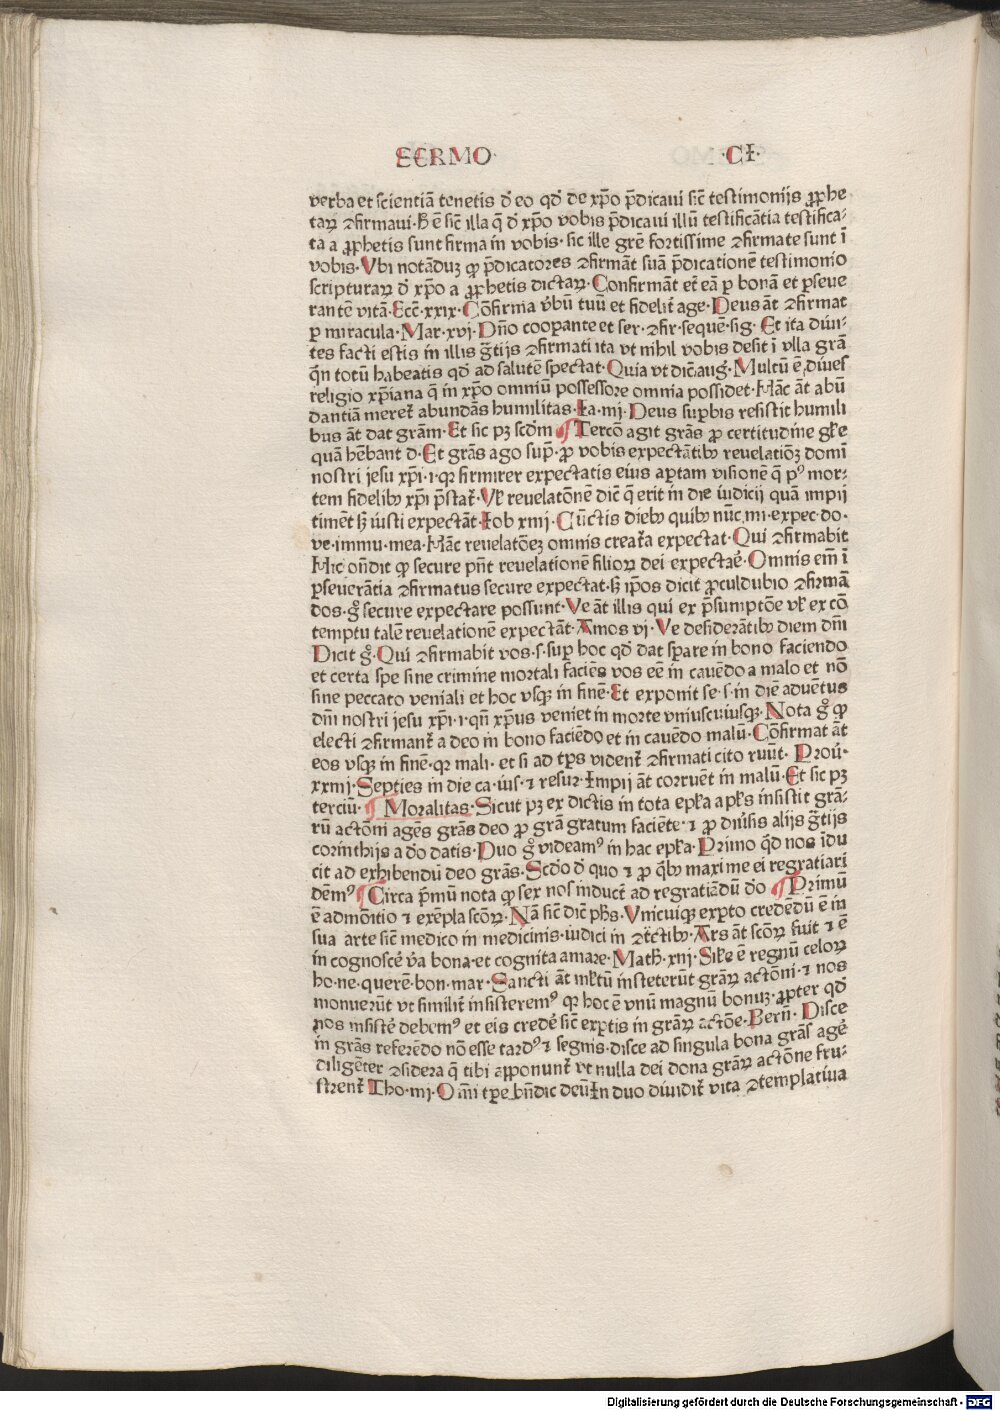 SERMO CI·
verba et scientiā tenetis d̄ eo qđ de xp̄o p̄dicaui sic̄ testimonijs ꝓphe
taꝝ ꝯfirmaui·h̄ ē sic̄ illa q̄ d̄ xp̄o vobis p̄dicaui illū testificātia testifica-
ta a ꝓphetis sunt firma in vobis·sic ille gr̄e fortissime ꝯfirmate sunt ī
vobis·Vbi notāduꝫ ꝙ p̄dicatores ꝯfirmāt suā p̄dicationē testimonio
scripturaꝝ d̄ xp̄o a ꝓphetis dictaꝝ·Confirmāt et̄ eā ꝑ bonā et ꝑseue
rantē vitā·Ecc̄·xxix·Cōfirma v̄bū tuū et fidelit̄ age·Deus āt ꝯfirmat
ꝑ miracula·Mar·xvj·Dn̄o cooꝑante et ser·ꝯfir·sequē·sig·Et ita dūi-
tes facti estis in illis ḡtijs ꝯfirmati ita vt nihil vobis desit ī vlla grā
q̄n totū habeatis qđ ad salutē spectat·Quia vt dic̄ aug̉·Multū ē diues
religio xp̄iana q̄ in xp̄o omniū possessore omnia possidet·Hāc āt abū
dantiā meret̄ abundās humilitas·Ia·iiij·Deus suꝑbis resistit humili
bus āt dat grām·Et sic pꝫ scdm̄ ¶ Tercō agit grās ꝓ certitudīne gl̄e
quā hēbant d·Et grās ago suꝑ·ꝓ vobis expectātibꝫ reuelatiōꝫ domī
nostri jesu xp̄i·i·qꝛ firmirer expectatis eius aꝑtam visionē q̄ pꝰ mor-
tem fidelibꝫ xp̄i p̄stat̄·Vl̄ reuelatōnē dic̄ q̄ erit in die iudicij quā impij
timēt sꝫ iusti expectāt·Iob xiiij·Cūctis diebꝫ quibꝫ nūc mi·expec·do-
ve·immu·mea·Hāc reuelatōeꝫ omnis creat̄a expectat·Qui ꝯfirmabit
Hic on̄dit ꝙ secure pn̄t reuelationē filioꝝ dei expectaē·Omnis em̄ ī
ꝑseuerātia ꝯfirmatus secure expectat·sꝫ ip̄os dicit ꝓculdubio ꝯfirmā
dos·g̊ secure expectare possunt·Ve āt illis qui ex p̄sumptōe vl̄ ex cō
temptu talē reuelationē expectāt·Amos vj·Ve desiderātibꝫ diem dn̄i
Dicit g̊·Qui ꝯfirmabit vos·s·suꝑ hoc qđ dat sꝑare in bono faciendo
et certa spe sine crimine mortali faciēs vos eē in cauēdo a malo et nō
sine peccato veniali et hoc vsqꝫ in finē·Et exponit se·s·in diē aduētus
dn̄i nostri jesu xp̄i·i·qn̄ xp̄us veniet in morte vniuscuiusqꝫ·Nota g̊ ꝙ
electi ꝯfirmant̄ a deo in bono faciēdo et in cauēdo malū·Cōfirmat āt
eos vsqꝫ in finē·qꝛ mali·et si ad tp̄s vident̄ ꝯfirmati cito ruūt·Prou·
xxiiij·Septies in die ca·iūs·⁊ resur·Impij āt corruēt in malū·Et sic pꝫ
terciū· ¶ Moralitas·Sicut pꝫ ex dictis in tota epl̄a apl̄s insistit grā-
rū actōni agēs grās deo ꝓ grā gratum faciēte·⁊ ꝓ diūsis alijs ḡtijs
corinthijs a dō datis·Duo g̊ videamꝰ in hac epl̄a·Primo qđ nos īdu
cit ad exhibendū deo grās·Scdō d̄ quo ⁊ ꝓ qibꝫ maxime ei regratiari
dēmꝰ ¶ Circa p̄mū nota ꝙ sex nos inducēt ad regratiādū dō ¶ Primū
ē admōitio ⁊ exēpla scōꝝ·Nā sic̄ dic̄ ph̄s·Vnicuiqꝫ exꝑto credēdū ē in
sua arte sic̄ medico in medicinis·iudici in ꝯt̄ctibꝫ·Ars āt scōꝝ fuit ⁊ ē
in cognoscē v̄a bona·et cognita amare·Math̄·xiij·Sil̄e ē regnū celoꝝ
ho·ne·querē·bon·mar·Sancti āt ml̄tū insteterūt grāꝝ actōni·⁊ nos
monuerūt vt similit̄ insisteremꝰ qꝛ hoc ē vnū magnū bonuꝫ·ꝓpter qđ
nos insistē debemꝰ et eis credē sic̄ exꝑtis in grāꝝ actōe·Bern̄·Disce
in grās referēdo nō esse tardꝰ ⁊ segnis·disce ad singula bona grās agē
diligēter ꝯsidera q̄ tibi apponunt̄ vt nulla dei dona grāꝝ actōne fru-
strent̄ Tho·iiij·O āni tꝑe bn̄dic deū·In duo diuidit̄ vita ꝯtemplatiua
Digitalisierung gefördert durch die Deutsche Forschungsgemeinschaft - DFG